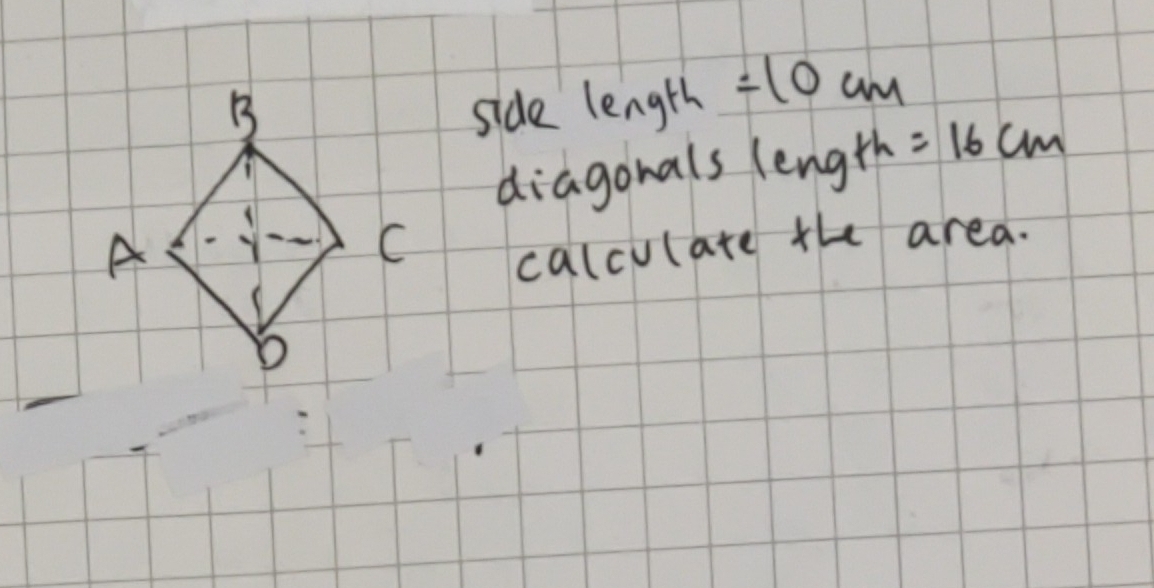 B
side length = 10 cm
diagonals length = 16 cm
A C
calculate the area.
D